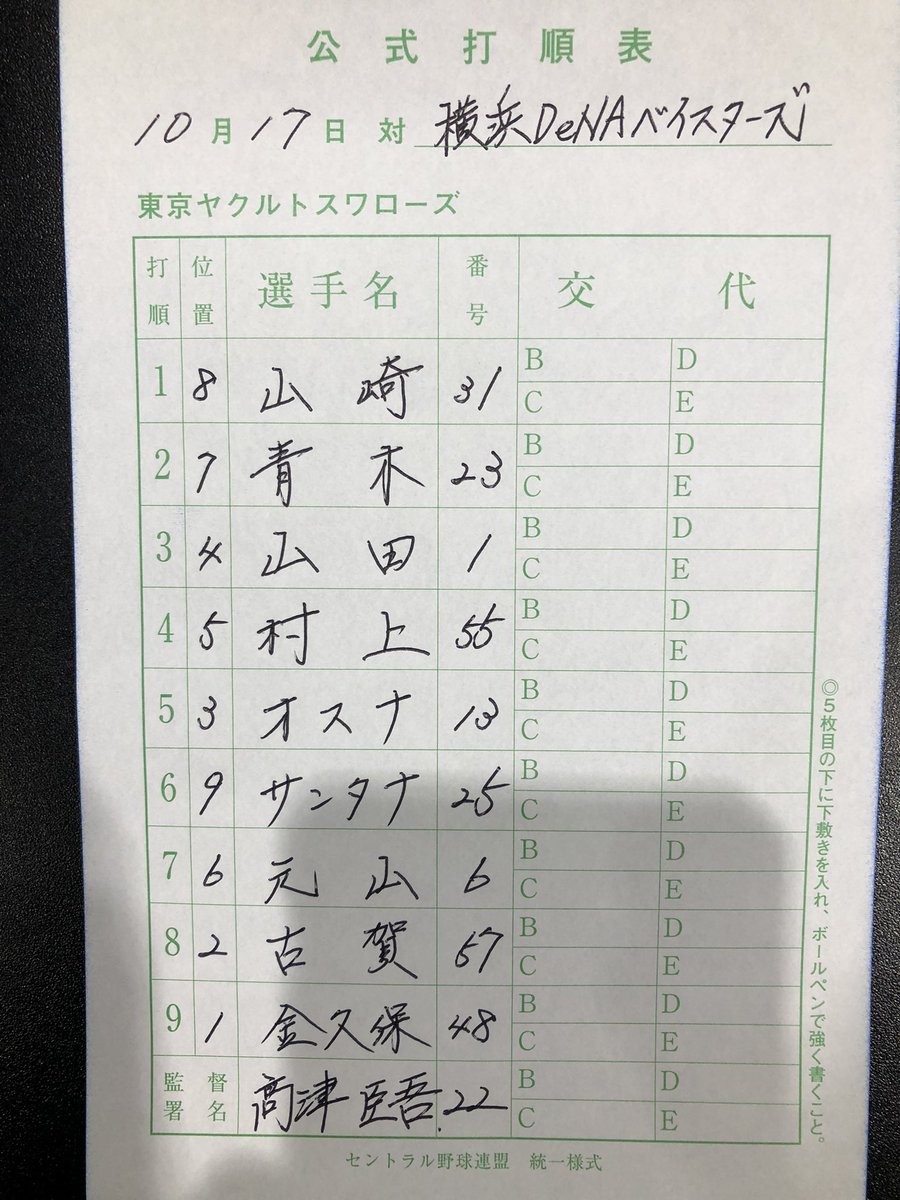 公式打順表
10月17日 対 横浜DeNAベイスターズ
東京ヤクルトスワローズ
打順 位置 選手名 番号 交代
1 8 山崎 31 B D C E
2 7 青木 23 B D C E
3 4 山田 1 B D C E
4 5 村上 55 B D C E
5 3 オスナ 13 B D C E
6 9 サンタナ 25 B D C E
7 6 元山 6 B D C E
8 2 古賀 57 B D C E
9 1 金久保 48 B D C E
監督署名 高津臣吾 22 B D C E
◎5枚目の下に下敷きを入れ、ボールペンで強く書くこと。
セントラル野球連盟 統一様式